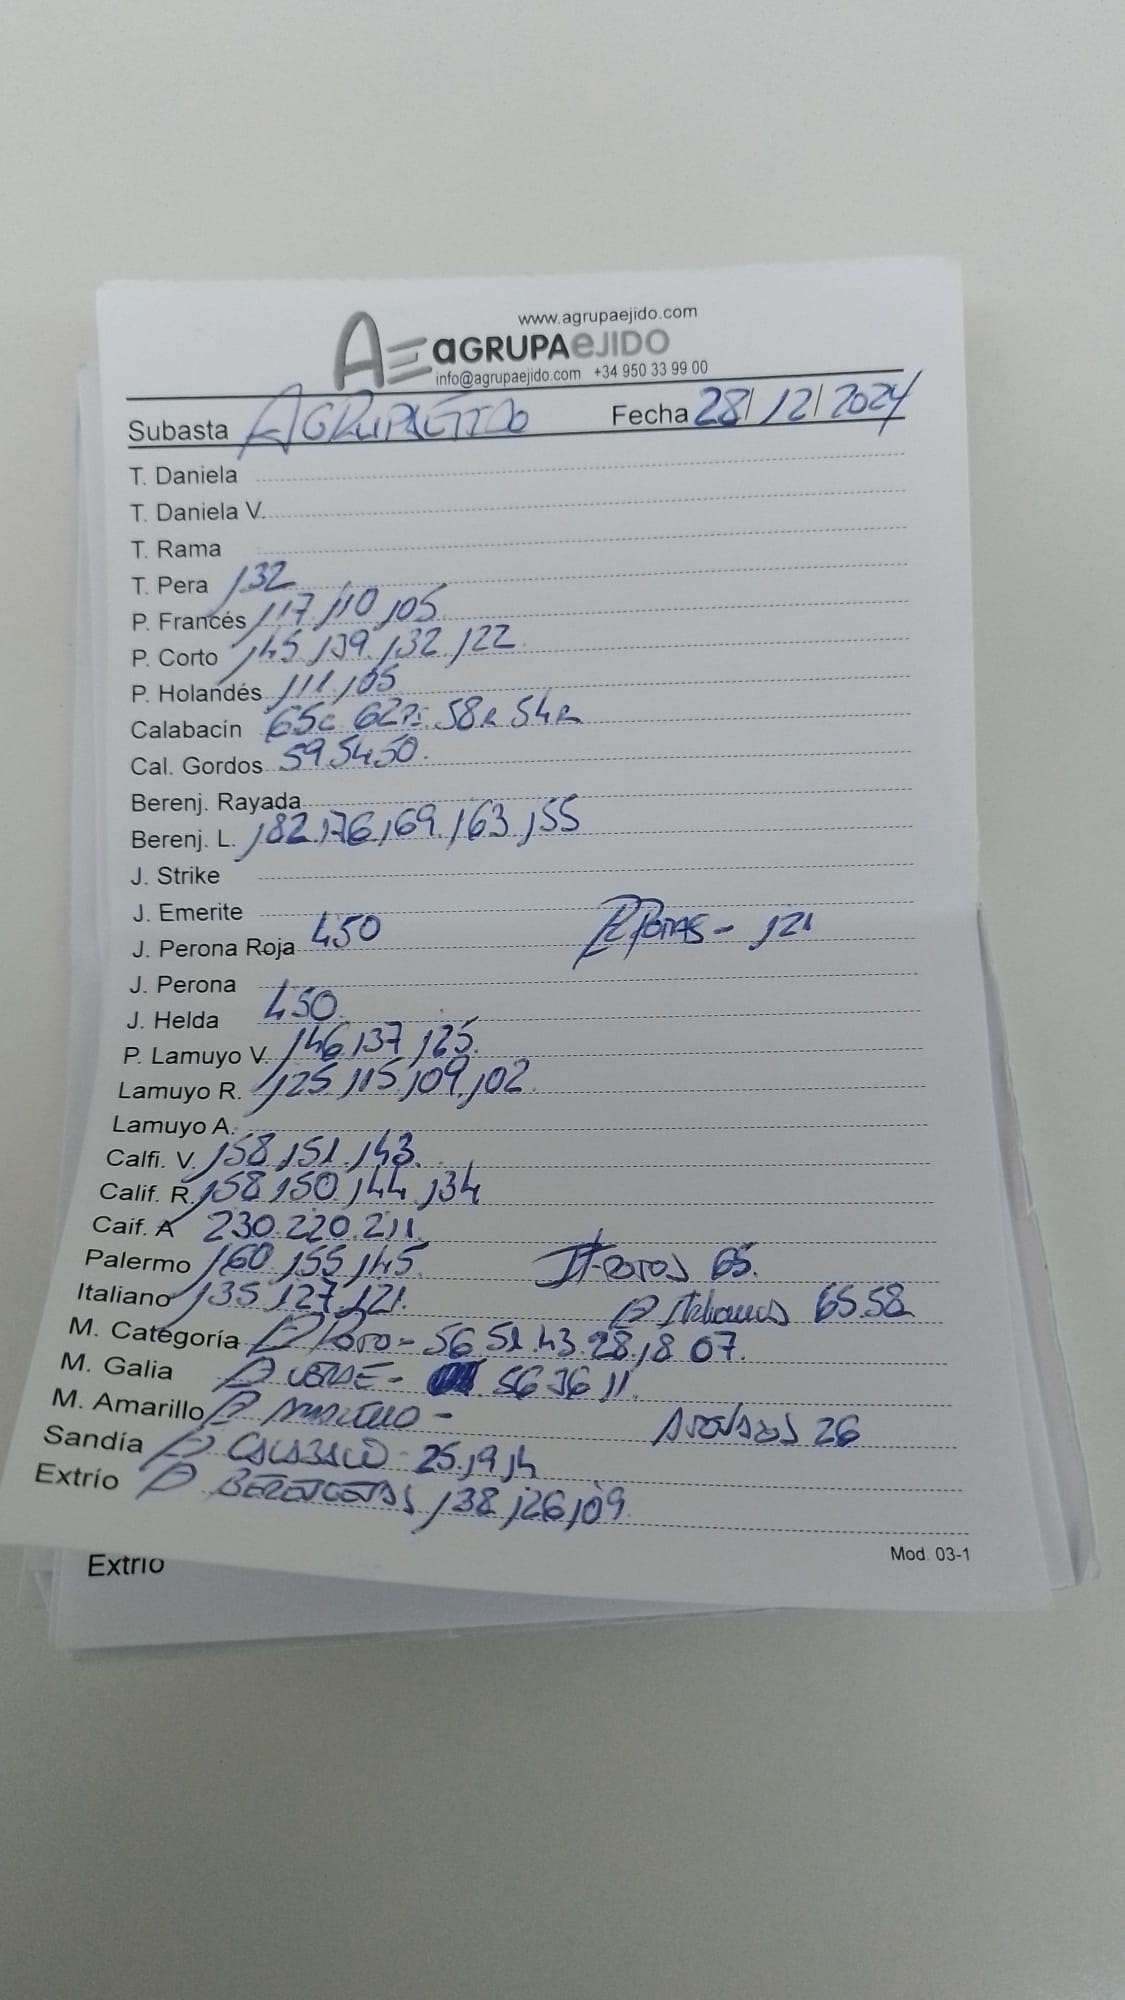 www.agrupaejido.com
AE aGRUPAeJIDO
info@agrupaejido.com +34 950 33 99 00
Subasta AGRUPAEJIDO Fecha 28/12/2024
T. Daniela
T. Daniela V.
T. Rama
T. Pera 132
P. Francés 117 110 105
P. Corto 145 139 132 122
P. Holandés 111 105
Calabacín 65c 62 58 54
Cal. Gordos 59.54.50.
Berenj. Rayada
Berenj. L. 182.176.169.163.155
J. Strike
J. Emerite
J. Perona Roja 450 - 121
J. Perona
J. Helda 450
P. Lamuyo V. 146 137 125.
Lamuyo R. 125 115 109 102
Lamuyo A.
Calfi. V. 158 151 143
Calif. R. 158 150 144 134
Caif. A 230.220.211
Palermo 160 155 145 ROTOS 65.
Italiano 135 127 121. D Italianos 65.58
M. Categoría D Rojo - 56 51.43.28.18 07.
M. Galia D VERDE - 56 36 11.
M. Amarillo D AMARILLO - 26
Sandía D CALABACIN - 25.19.14
Extrío D BERENGENAS 138 126 109.
Mod. 03-1
Extrío